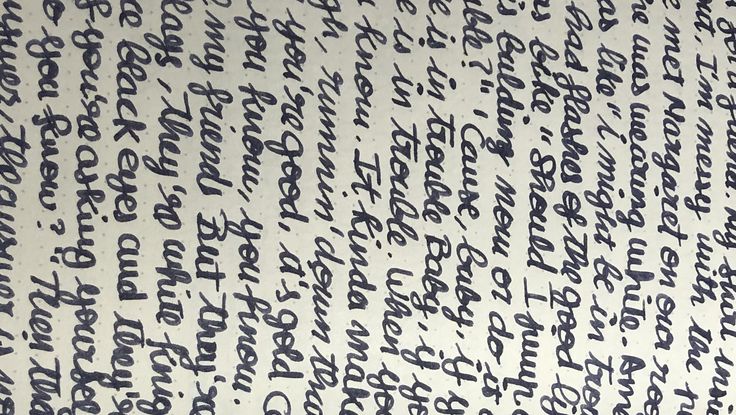 my shit in
I'm messy with the
met Margaret on our roo
was wearing white. Am
as like "i might be in trou
had flashes of the good li
as like "Should I jump
is bulding now or do, is
ble?", 'Cause, baby, if y
e is in trouble Baby, if yo
e is in trouble. When you
know. It kinda mak
gh, runnin' down tha
you're good, it's gold
you know, you know.
my friends But they'r
lays, they'r white knig
black eyes and they'
f you're asking yoursel
o you know?" They
the answer is